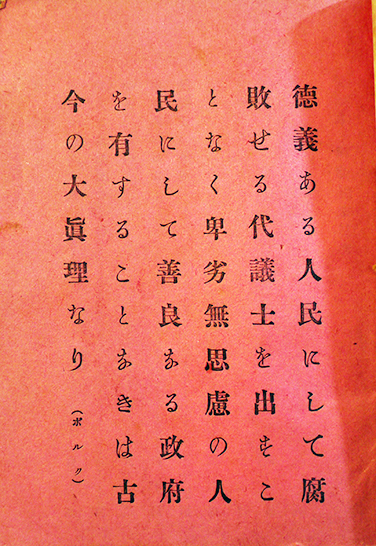 德義ある人民にして腐
敗せる代議士を出すこ
となく卑劣無思慮の人
民にして善良なる政府
を有することなきは古
今の大眞理なり（ボルク）